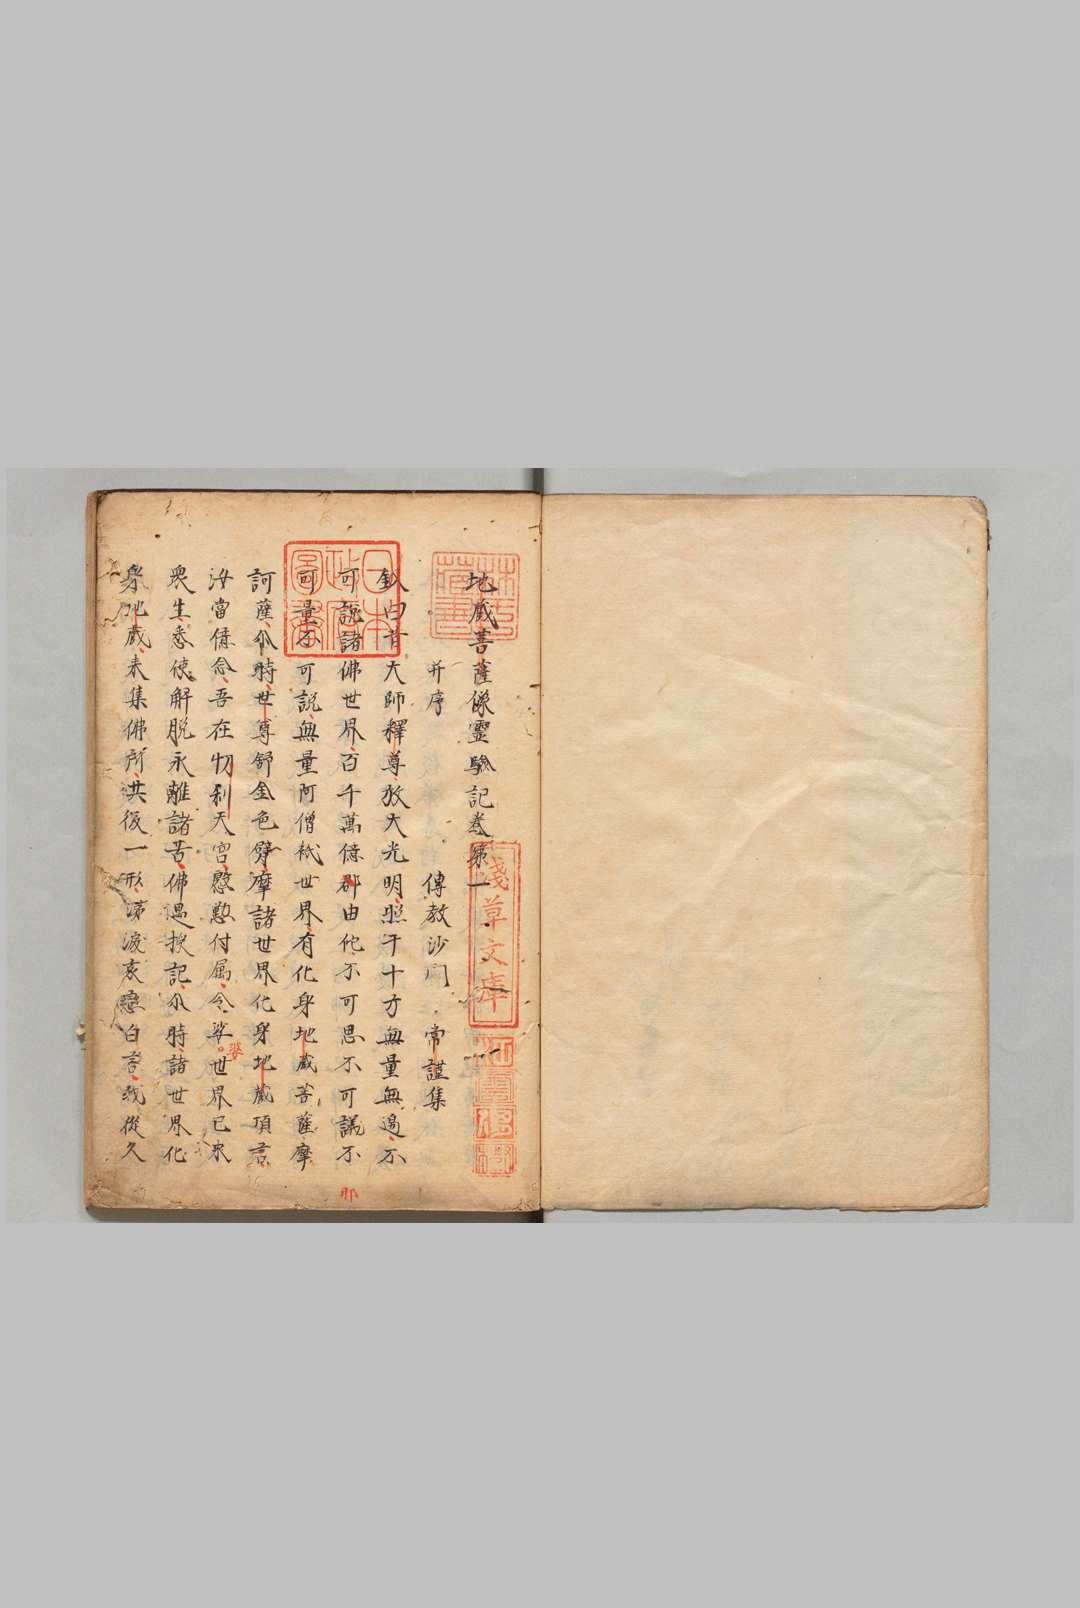 地蔵菩薩像靈驗記巻第一
并序　傳教沙門　常謹集
叙曰昔大師釋尊放大光明照于十方無量無邊不
可說諸佛世界百千萬億郡由他不可思不可議不
那
可量不可說無量阿僧祇世界有化身地蔵菩薩摩
訶薩尒時世尊舒金色臂摩諸世界化身地蔵頂言
汝當億念吾在忉利天宮慇懃付属令娑世界已来
婆
衆生悉使解脱永離諸苦佛遇授記尒時諸世界化
衆地蔵来集佛所洪復一形涕淚哀戀白言我從久
林氏藏書
日本政府圖書
淺草文庫
江雲渭樹